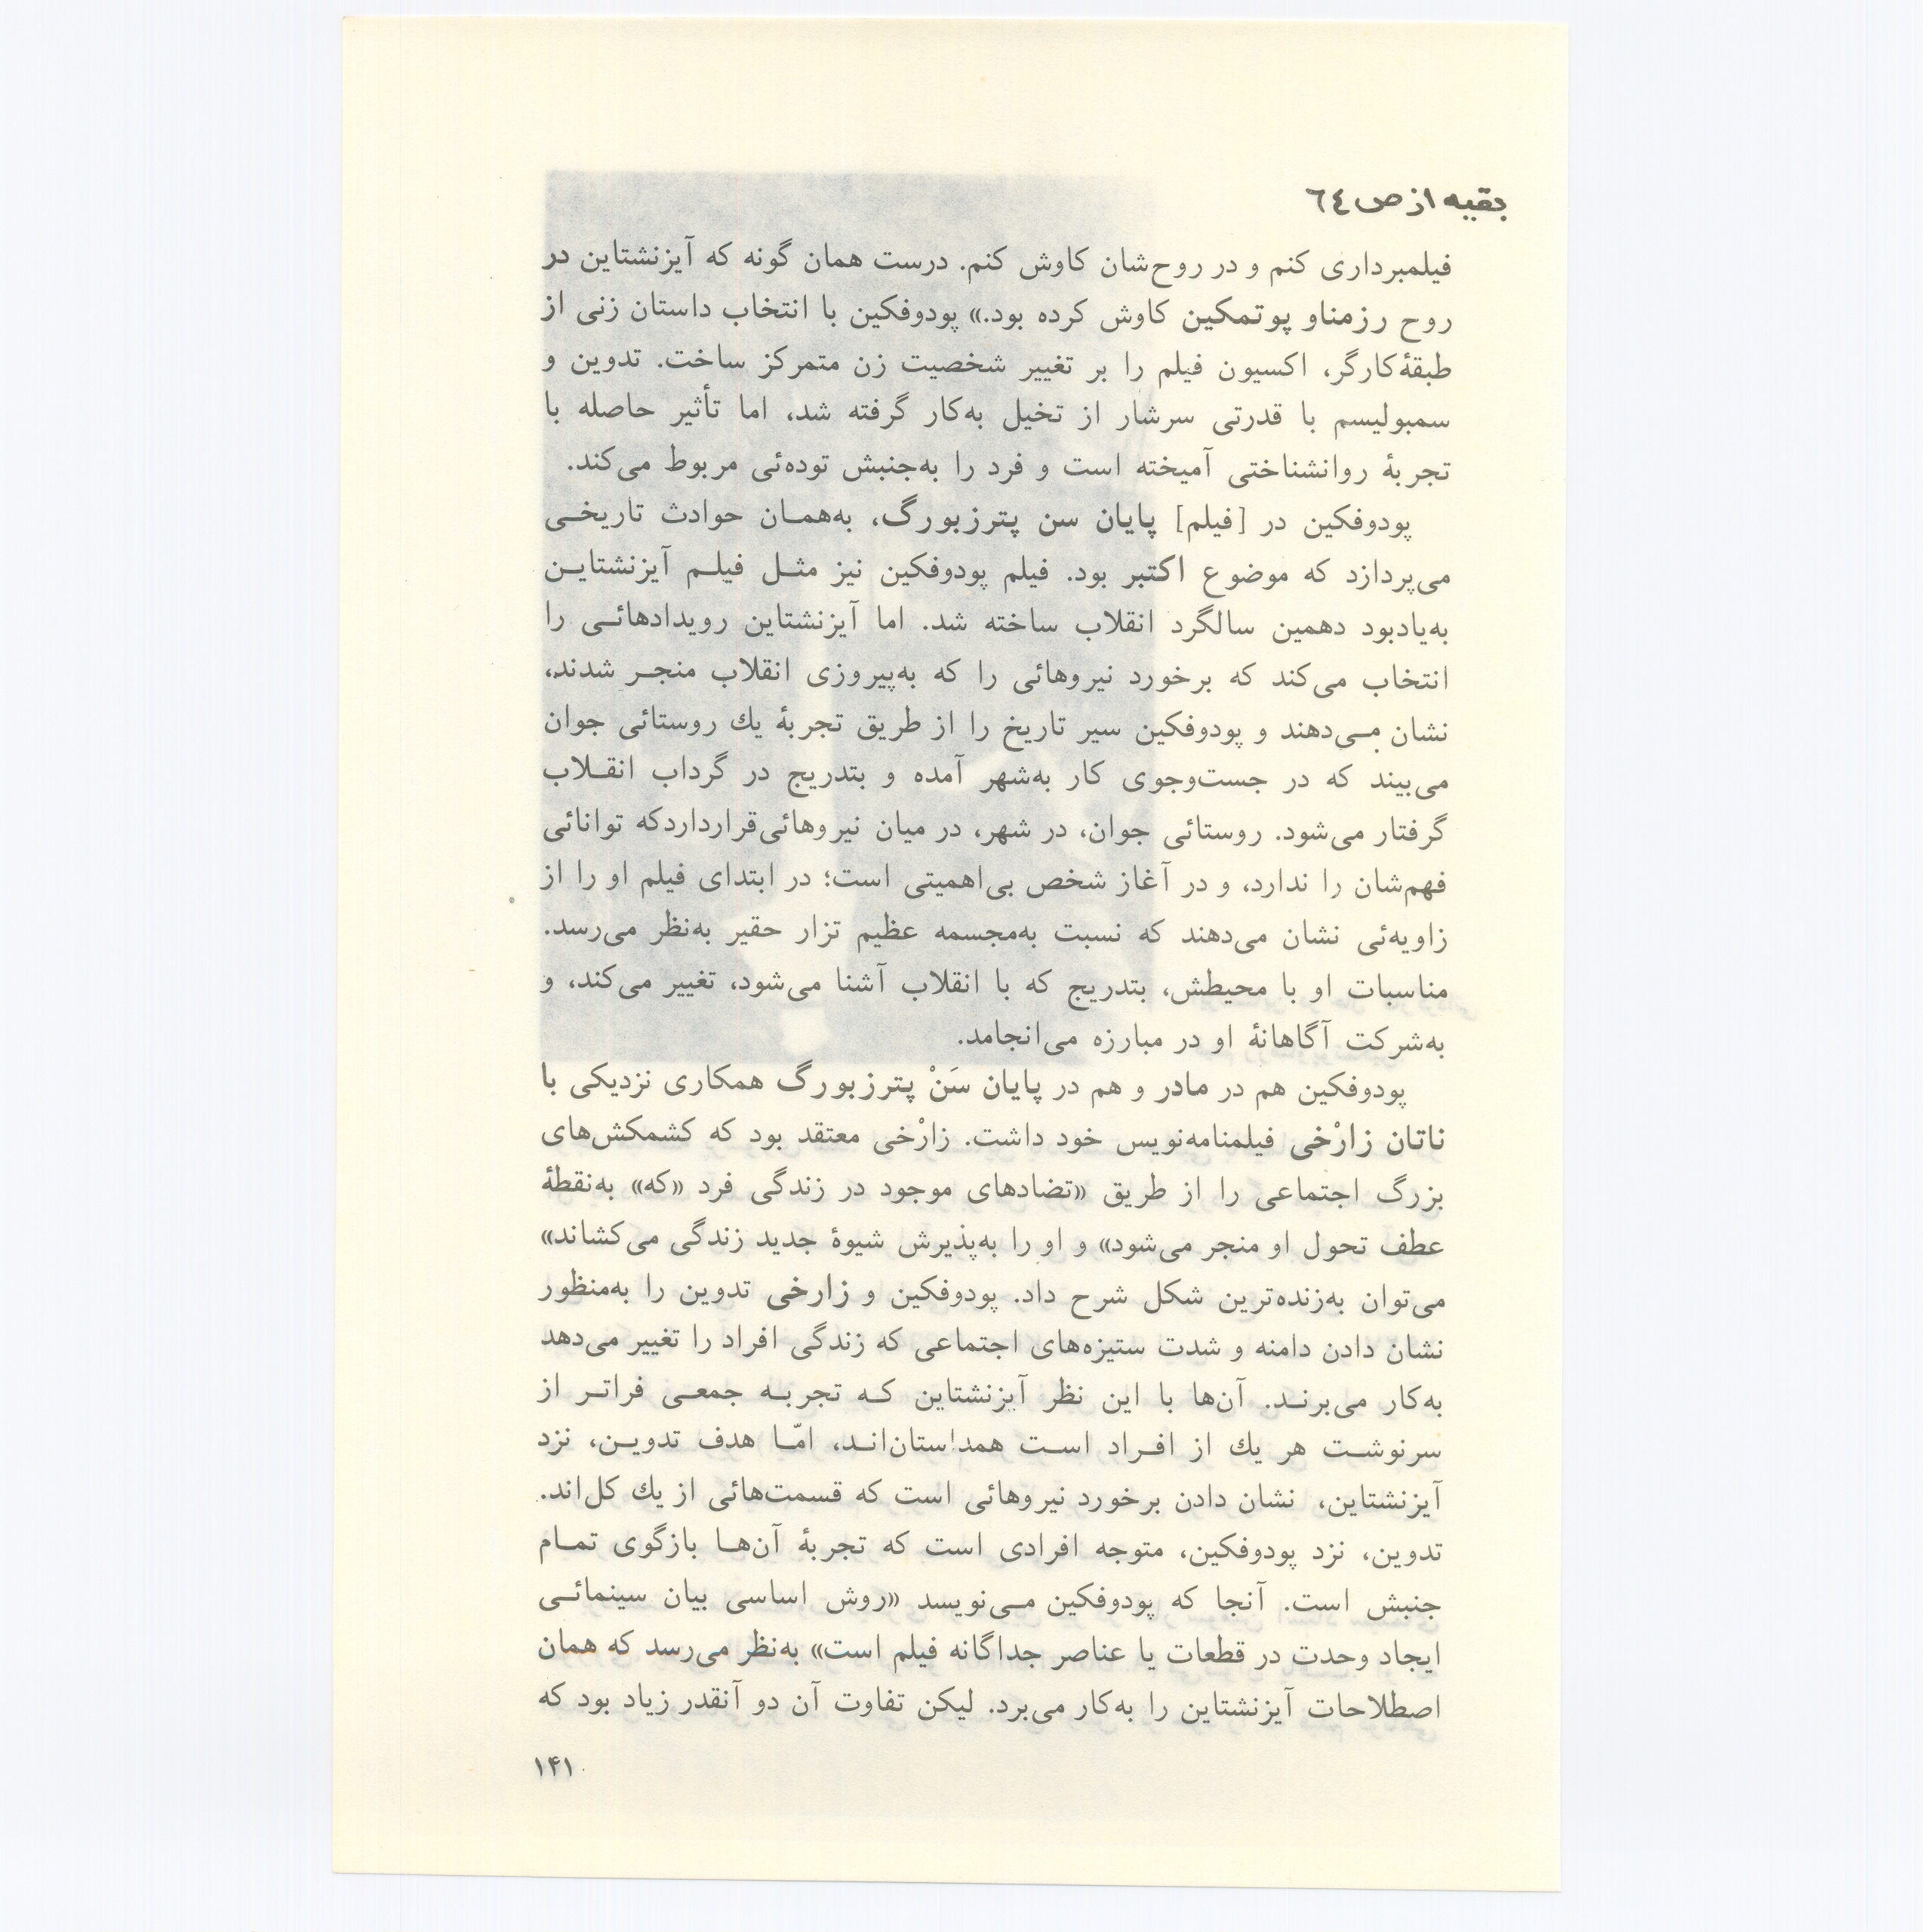 بقیه از ص ٦٤
فیلمبرداری کنم و در روح‌شان کاوش کنم. درست همان گونه که آیزنشتاین در
روح رزمناو پوتمکین کاوش کرده بود.» پودوفکین با انتخاب داستان زنی از
طبقهٔ‌کارگر، اکسیون فیلم را بر تغییر شخصیت زن متمرکز ساخت. تدوین و
سمبولیسم با قدرتی سرشار از تخیل به‌کار گرفته شد، اما تأثیر حاصله با
تجربهٔ روانشناختی آمیخته است و فرد را به‌جنبش توده‌ئی مربوط می‌کند.
پودوفکین در [فیلم] پایان سن پترزبورگ، به‌همـان حوادث تاریخـی
می‌پردازد که موضوع اکتبر بود. فیلم پودوفکین نیز مثـل فیلـم آیزنشتایـن
به‌یادبود دهمین سالگرد انقلاب ساخته شد. اما آیزنشتاین رویدادهائـی را
انتخاب می‌کند که برخورد نیروهائی را که به‌پیروزی انقلاب منجـر شدند،
نشان مـی‌دهند و پودوفکین سیر تاریخ را از طریق تجربهٔ یك روستائی جوان
می‌بیند که در جست‌وجوی کار به‌شهر آمده و بتدریج در گرداب انقـلاب
گرفتار می‌شود. روستائی جوان، در شهر، در میان نیروهائی‌قرارداردکه توانائی
فهم‌شان را ندارد، و در آغاز شخص بی‌اهمیتی است؛ در ابتدای فیلم او را از
زاویه‌ئی نشان می‌دهند که نسبت به‌مجسمه عظیم تزار حقیر به‌نظر می‌رسد.
مناسبات او با محیطش، بتدریج که با انقلاب آشنا می‌شود، تغییر می‌کند، و
به‌شرکت آگاهانهٔ او در مبارزه می‌انجامد.
پودوفکین هم در مادر و هم در پایان سَنْ پترزبورگ همکاری نزدیکی با
ناتان زارْخی فیلمنامه‌نویس خود داشت. زارْخی معتقد بود که کشمکش‌های
بزرگ اجتماعی را از طریق «تضادهای موجود در زندگی فرد «که» به‌نقطهٔ
عطف تحول او منجر می‌شود» و او را به‌پذیرش شیوهٔ جدید زندگی می‌کشاند»
می‌توان به‌زنده‌ترین شکل شرح داد. پودوفکین و زارخی تدوین را به‌منظور
نشان دادن دامنه و شدت ستیزه‌های اجتماعی که زندگی افراد را تغییر می‌دهد
به‌کار می‌برنـد. آن‌ها با این نظر آیزنشتاین کـه تجربـه جمعـی فراتـر از
سرنوشـت هر یك از افـراد اسـت همداستان‌انـد، امّـا هدف تدویـن، نزد
آیزنشتاین، نشان دادن برخورد نیروهائی است که قسمت‌هائی از یك کل‌اند.
تدوین، نزد پودوفکین، متوجه افرادی است که تجربهٔ آن‌هـا بازگوی تمـام
جنبش است. آنجا که پودوفکین مـی‌نویسد «روش اساسی بیان سینمائـی
ایجاد وحدت در قطعات یا عناصر جداگانه فیلم است» به‌نظر می‌رسد که همان
اصطلاحات آیزنشتاین را به‌کار می‌برد. لیکن تفاوت آن دو آنقدر زیاد بود که
۱۴۱